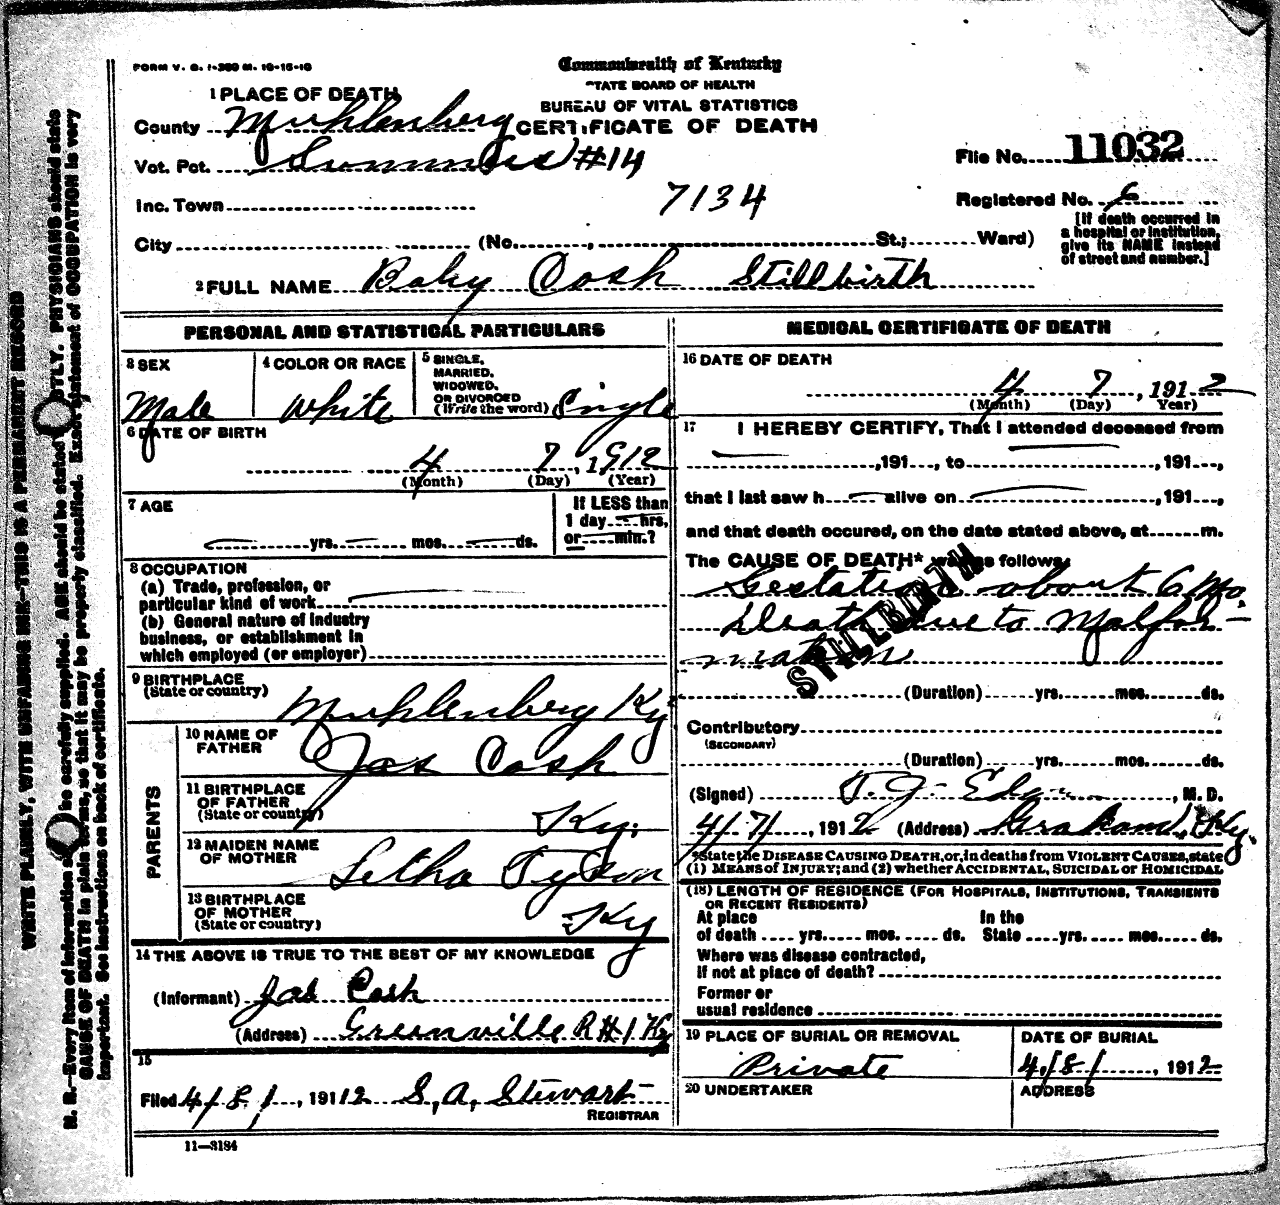 FORM V. S. 1-350 M. 10-15-10
Commonwealth of Kentucky
STATE BOARD OF HEALTH
BUREAU OF VITAL STATISTICS
CERTIFICATE OF DEATH
1 PLACE OF DEATH
County Muhlenberg
Vot. Pct. #14
File No. 11032
Inc. Town
7134
Registered No. 6
City (No. , St.; Ward)
[If death occurred in
a hospital or institution,
give its NAME instead
of street and number.]
2 FULL NAME Baby Cash Stillbirth
PERSONAL AND STATISTICAL PARTICULARS
3 SEX
Male
4 COLOR OR RACE
White
5 SINGLE,
MARRIED,
WIDOWED,
OR DIVORCED
(Write the word) Single
6 DATE OF BIRTH
4 7, 1912
(Month) (Day) (Year)
7 AGE
yrs. mos. ds.
If LESS than
1 day hrs,
or min.?
8 OCCUPATION
(a) Trade, profession, or
particular kind of work
(b) General nature of industry
business, or establishment in
which employed (or employer)
9 BIRTHPLACE
(State or country) Muhlenberg Ky
PARENTS
10 NAME OF
FATHER Jas Cash
11 BIRTHPLACE
OF FATHER
(State or country) Ky.
12 MAIDEN NAME
OF MOTHER Letha
13 BIRTHPLACE
OF MOTHER
(State or country) Ky
14 THE ABOVE IS TRUE TO THE BEST OF MY KNOWLEDGE
(Informant) Jas Cash
(Address) Greenville R#1 Ky
15
Filed 4/8/, 19112 S, A, Stewart
REGISTRAR
11—3184
MEDICAL CERTIFICATE OF DEATH
16 DATE OF DEATH
4 7, 1912
(Month) (Day) Year)
17 I HEREBY CERTIFY, That I attended deceased from
,191 , to ,191 ,
that I last saw h alive on ,191 ,
and that death occured, on the date stated above, at m.
The CAUSE OF DEATH* was as follows:
Gestation about 6 Mo.
Death due to Malfor-
mation
STILLBIRTH
(Duration) yrs. mos. ds.
Contributory
(SECONDARY)
(Duration) yrs. mos. ds.
(Signed) T. J. , M. D.
4/7/ , 1912 (Address) Graham, Ky.
*State the DISEASE CAUSING DEATH, or, in deaths from VIOLENT CAUSES, state
(1) MEANS of INJURY; and (2) whether ACCIDENTAL, SUICIDAL or HOMICIDAL
(18) LENGTH OF RESIDENCE (FOR HOSPITALS, INSTITUTIONS, TRANSIENTS
OR RECENT RESIDENTS)
At place In the
of death yrs. mos. ds. State yrs. mos. ds.
Where was disease contracted,
if not at place of death?
Former or
usual residence
19 PLACE OF BURIAL OR REMOVAL
Private
DATE OF BURIAL
4/8/ , 1912
20 UNDERTAKER
ADDRESS
WRITE PLAINLY, WITH UNFADING INK—THIS IS A PERMANENT RECORD
N. B.—Every item of information be carefully supplied. AGE should be stated EXACTLY. PHYSICIANS should state
CAUSE OF DEATH in plain terms, so that it may be properly classified. Exact statement of OCCUPATION is very
important. See instructions on back of certificate.